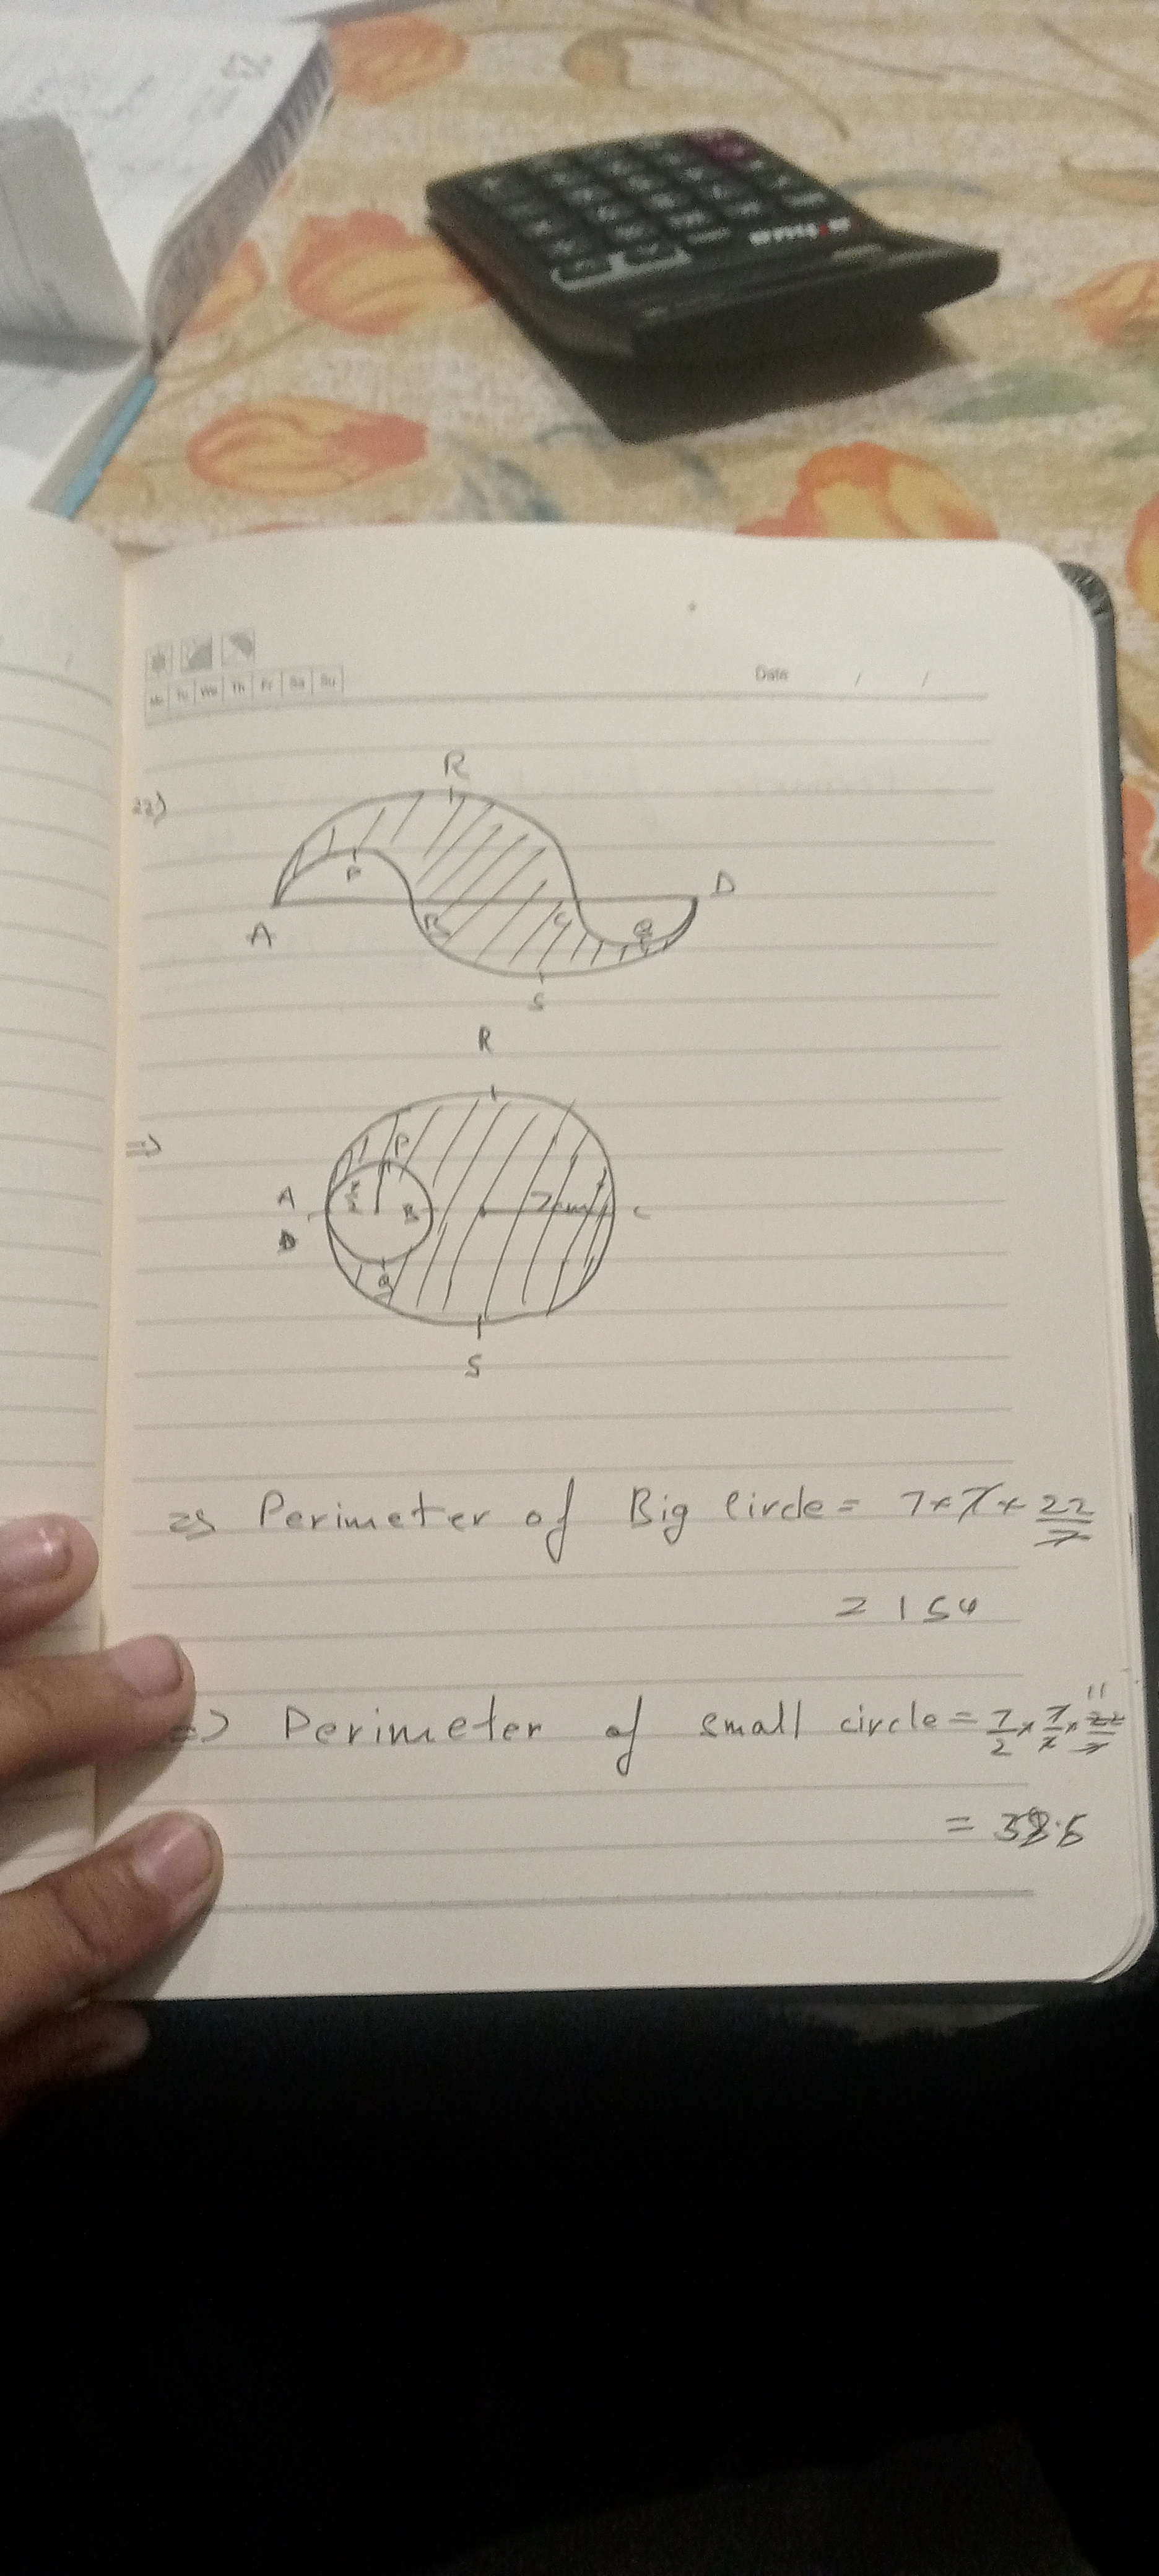 Date / /
Mo Tu We Th Fr Sa Su
22)
R
P
A B C D
Q
S
R
=>
P
A B 7cm C
D
Q
S
=> Perimeter of Big Circle = 7×7×22/7
= 154
=> Perimeter of small circle = 7/2×7/2×22/7
11